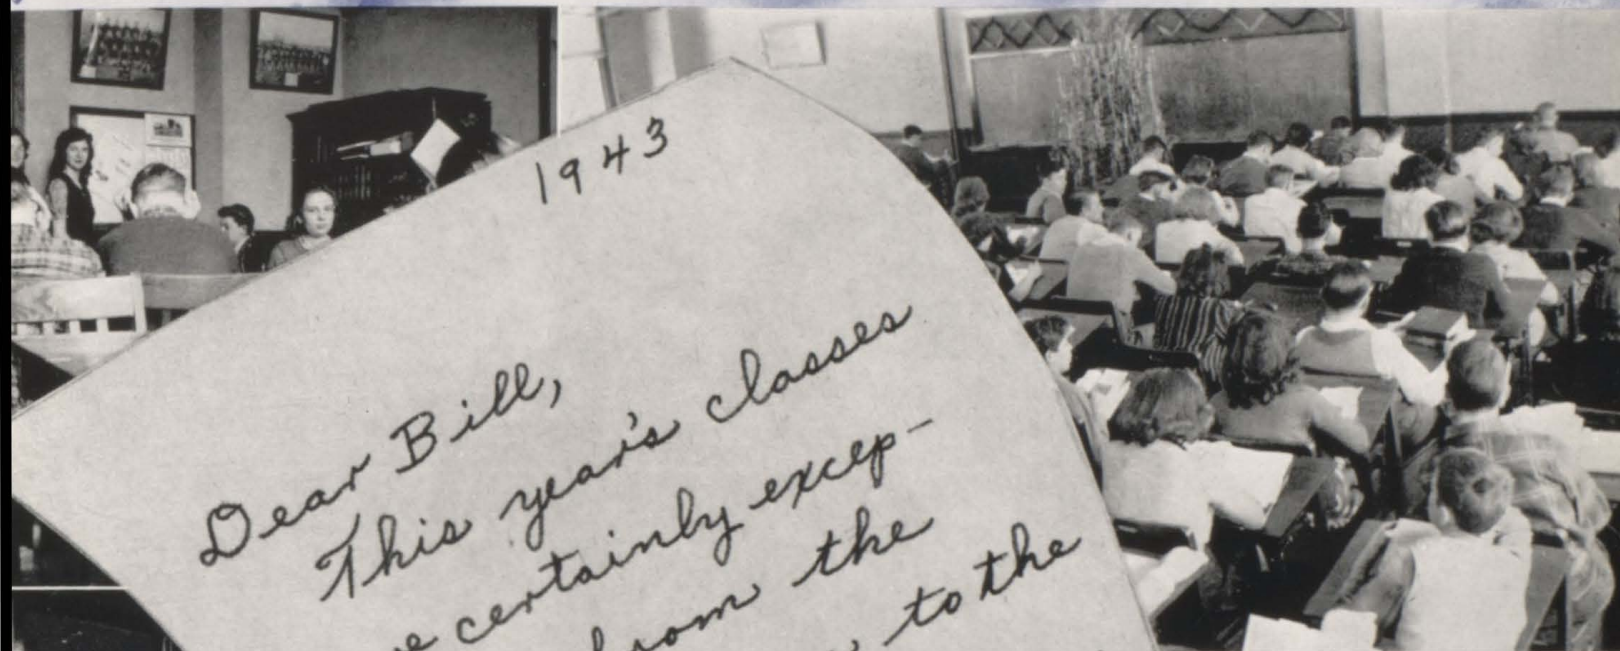 1943
Dear Bill,
This year's classes
certainly excep-
from the
to the